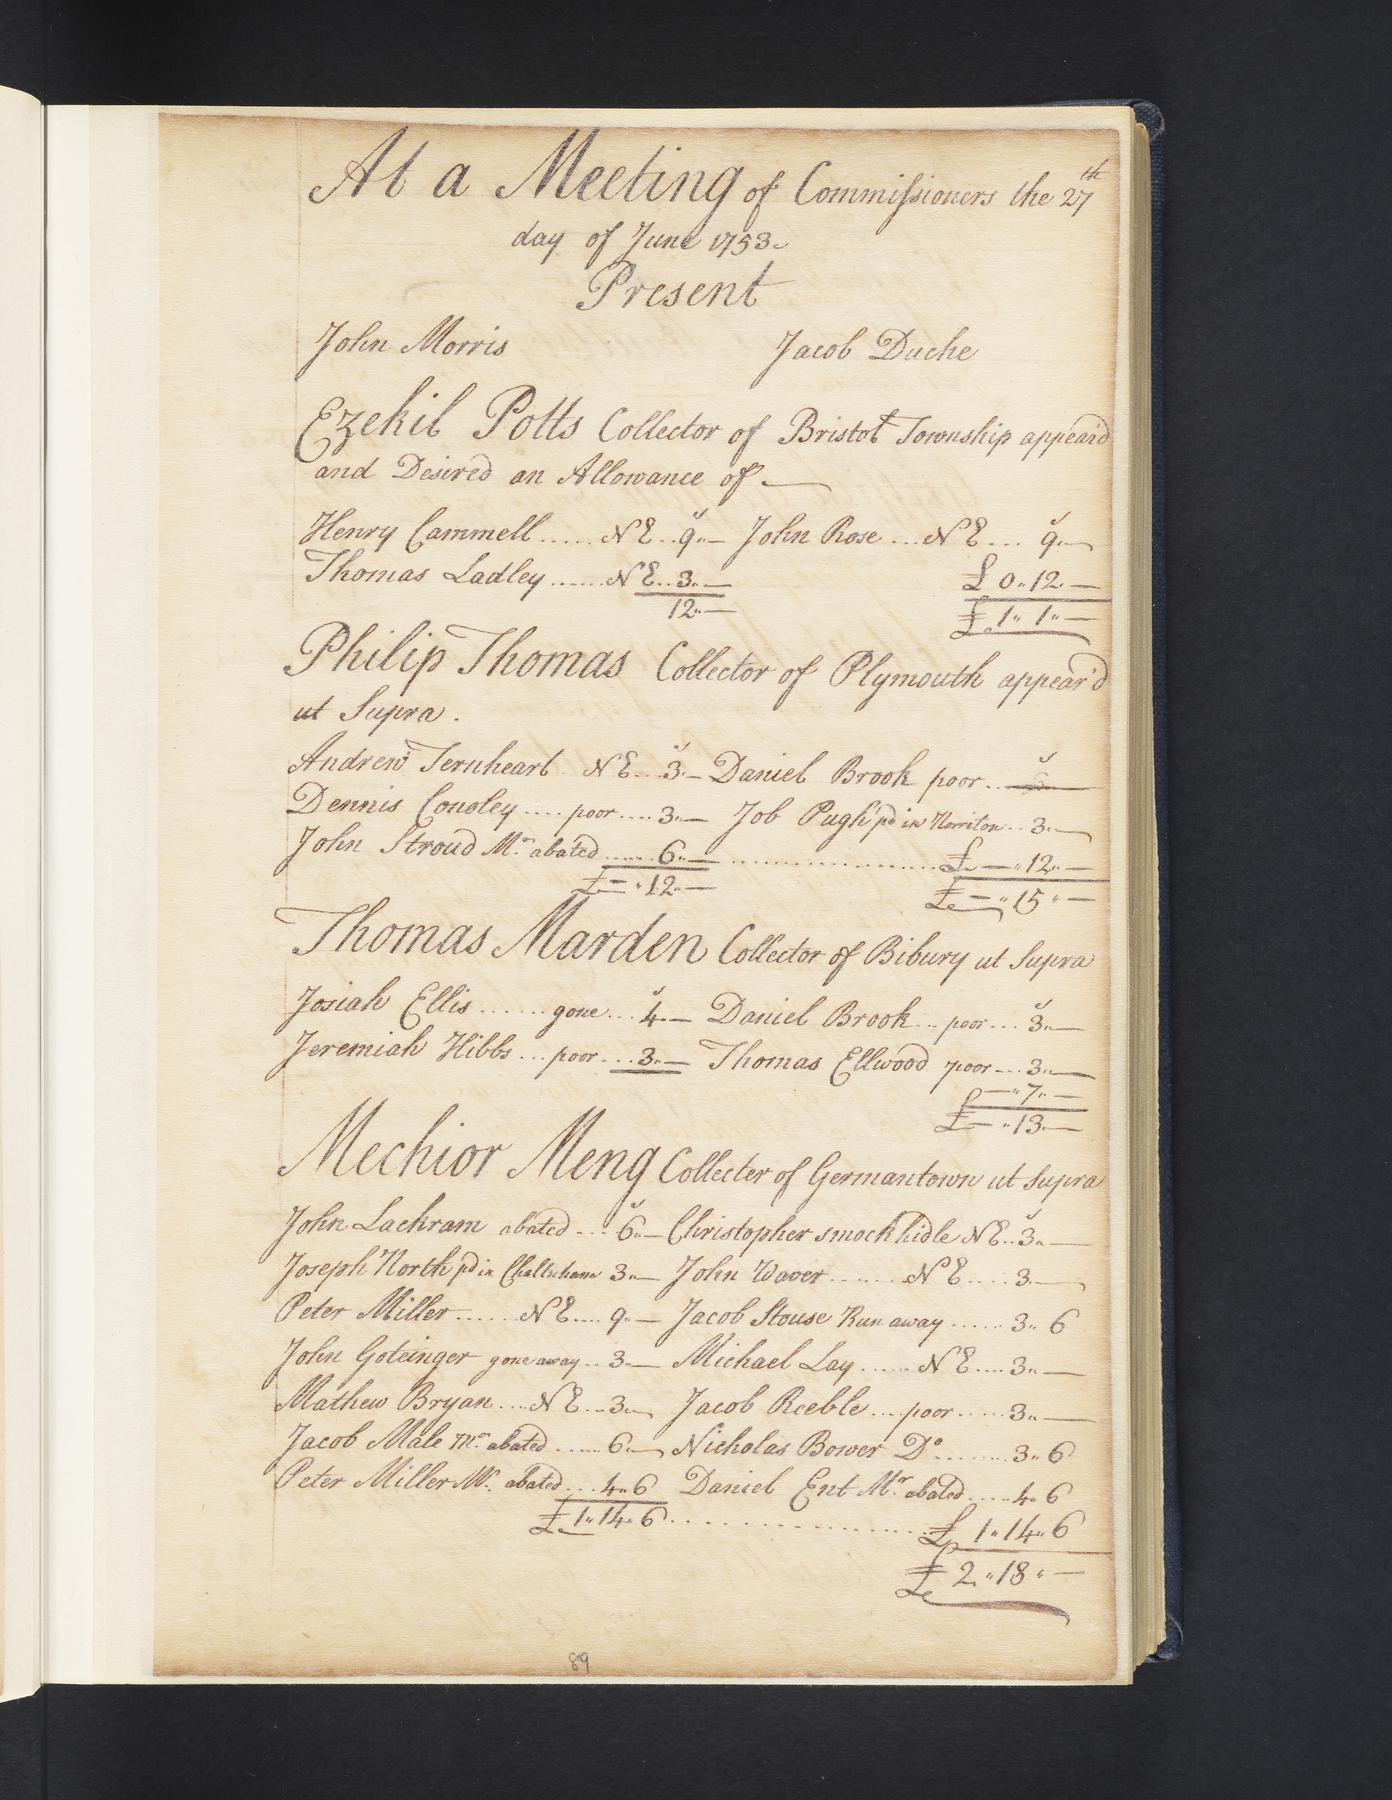 At a Meeting of Commissioners the 27th
day of June 1753.
Present
John Morris Jacob Duche
Ezekil Potts Collector of Bristol Township appear'd
and Desired an Allowance of
Henry Cammell ...... N E .. 9 „ — John Rose ... N E ... 9 „ —
Thomas Ladley ...... N E .. 3 „ — £ 0 „ 12 „ —
12 „ — £ 1 „ 1 „ —
Philip Thomas Collector of Plymouth appear'd
ut Supra .
Andrew Ternheart .. N E ... 3 „ — Daniel Brook poor ..
Dennis Conoley .... poor .... 3 „ — Job Pugh pd in Norriton .. 3 „ —
John Stroud Mr. abated ...... 6 „ — ................ £ — „ 12 „ —
£ — „ 12 „ — £ — „ 15 „ —
Thomas Marden Collector of Bibury ut Supra
Josiah Ellis ...... gone ... 4 „ — Daniel Brook ... poor ... 3 „ —
Jeremiah Hibbs ... poor ... 3 „ — Thomas Ellwood poor ... 3 „ —
£ — „ 7 „ —
£ — „ 13 „ —
Mechior Meng Collecter of Germantown ut supra
John Lackram abated ... 6 „ — Christopher smockhidle N E .. 3 „ —
Joseph North pd in Cheltenham 3 „ — John Waver ....... N E .... 3 „ —
Peter Miller ...... N E .... 9 „ — Jacob Stouse Run away ...... 3 „ 6
John Goteinger gone away .. 3 „ — Michael Lay ...... N E .... 3 „ —
Mathew Bryan .... N E ... 3 „ — Jacob Reeble ... poor ..... 3 „ —
Jacob Male Mr. abated ...... 6 „ — Nicholas Bower Do ........ 3 „ 6
Peter Miller Mr. abated ... 4 „ 6 Daniel Ent Mr. abated ..... 4 „ 6
£ 1 „ 14 „ 6 .................. £ 1 „ 14 „ 6
£ 2 „ 18 „ —
89